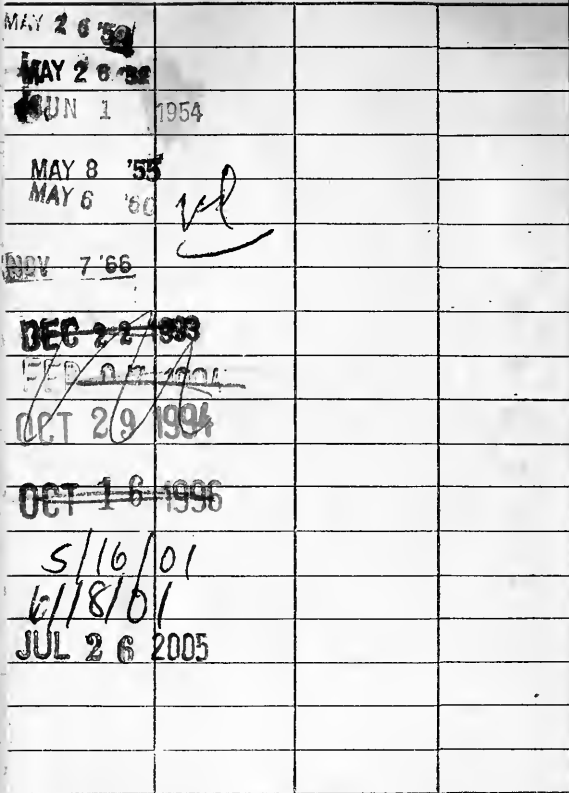 MAY 26
MAY 26 '52
JUN 1 1954
MAY 8 '55
MAY 6 '60
NOV 7 '66
DEC 22 1993
FEB 07 1994
OCT 29 1994
OCT 16 1996
5/16/01
6/18/01
JUL 26 2005